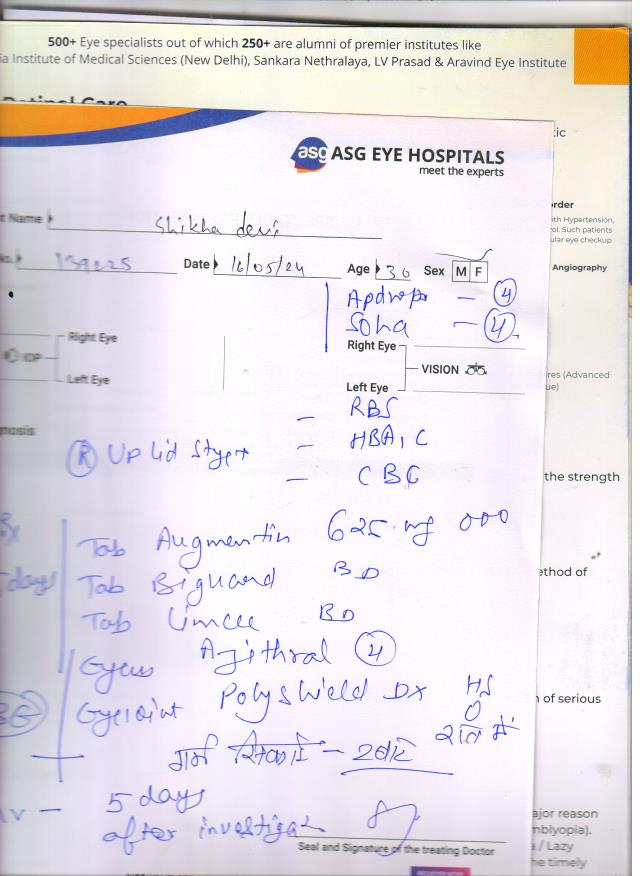 500+ Eye specialists out of which 250+ are alumni of premier institutes like
ia Institute of Medical Sciences (New Delhi), Sankara Nethralaya, LV Prasad & Aravind Eye Institute
Retinal Care
ic
asg ASG EYE HOSPITALS
meet the experts
rder
ith Hypertension,
ol. Such patients
ular eye checkup
t Name Shikha devi
No. Date 16/05/24 Age 30 Sex M F
Angiography
Apdrops - 4
Soha - 4
Right Eye
Right Eye
IOP
VISION
Left Eye
Left Eye
res (Advanced
ue)
- RBS
nosis
- HBA1C
R Up lid Stye
- CBC
the strength
Rx
Tab Augmentin 625 mg 000
5 days
Tab Biguard BD
ethod of
Tab Limcee BD
Azithral 4
Polyshield DX HS
n of serious
रात में
गर्म सिकाई - 2 बार
5 days
after investiga
ajor reason
mblyopia).
Seal and Signature of the treating Doctor
a / Lazy
he timely